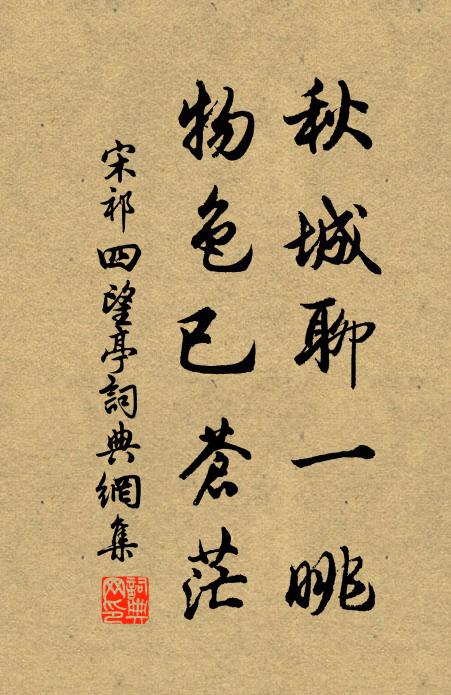 秋城聊一眺
物色已蒼茫
宋祁四望亭詞典網集
詞典网印